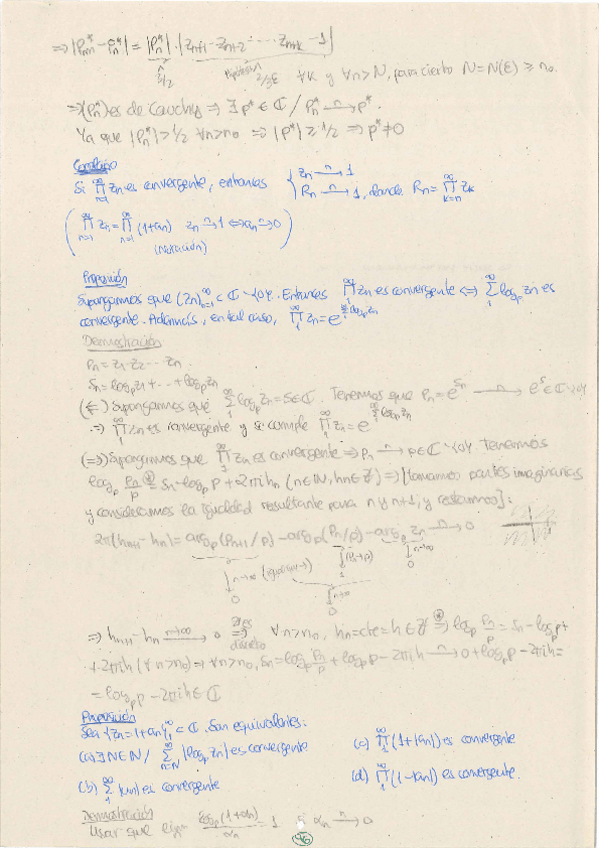 ⇒ |P*ₙ₊ₖ - P*ₙ| = |P*ₙ| · |zₙ₊₁ · zₙ₊₂ · ··· · zₙ₊ₖ - 1|
3/2 2/3 ε ∀k y ∀n>N, para cierto N=N(ε) ≥ n₀.
⇒ (P*ₙ) es de Cauchy ⇒ ∃ p* ∈ ℂ / P*ₙ →ⁿ p*.
Ya que |P*ₙ| > 1/2 ∀n>n₀ ⇒ |p*| ≥ 1/2 ⇒ p* ≠ 0
Corolario
Si ∏ₙ₌₁^∞ zₙ es convergente, entonces { zₙ →ⁿ 1
Rₙ →ⁿ 1, donde Rₙ = ∏ₖ₌ₙ^∞ zₖ
( ∏ₙ₌₁^∞ zₙ = ∏ₙ₌₁^∞ (1+aₙ) zₙ →ⁿ 1 ⇔ aₙ →ⁿ 0 )
(notación)
Proposición
Supongamos que (zₙ)ₙ₌₁^∞ ⊂ ℂ∖{0}. Entonces ∏₁^∞ zₙ es convergente ⇔ ∑₁^∞ logₚ zₙ es
convergente. Además, en tal caso, ∏₁^∞ zₙ = e^{∑₁^∞ logₚ zₙ}
Demostración
Pₙ = z₁·z₂ ··· zₙ
Sₙ = logₚ z₁ + ··· + logₚ zₙ
(⇐) Supongamos que ∑₁^∞ logₚ zₙ = S ∈ ℂ. Tenemos que Pₙ = e^{Sₙ} → e^S ∈ ℂ∖{0}
⇒ ∏₁^∞ zₙ es convergente y se cumple ∏₁^∞ zₙ = e^{∑₁^∞ logₚ zₙ}
(⇒) Supongamos que ∏₁^∞ zₙ es convergente ⇒ pₙ →ⁿ p ∈ ℂ∖{0}. Tenemos
logₚ Pₙ/p ⊛= Sₙ - logₚ p + 2πihₙ (n∈ℕ, hₙ∈ℤ) ⇒ [tomamos partes imaginarias
y consideramos la igualdad resultante para n y n+1, y restamos]:
2π(hₙ₊₁ - hₙ) = argₚ(Pₙ₊₁/p) - argₚ(Pₙ/p) - argₚ zₙ →ⁿ 0
↓ n→∞ ↓ (Pₙ→p) ↓ n→∞
0 1 0
↓ n→∞
0
⇒ hₙ₊₁ - hₙ →ⁿ→∞ 0 ⇒ ℤ es discreto ∀n>n₀, hₙ = cte = h ∈ ℤ ⊛⇒ logₚ Pₙ/p = Sₙ - logₚ p +
+ 2πih (∀n>n₀) ⇒ ∀n>n₀, Sₙ = logₚ Pₙ/p + logₚ p - 2πih → 0 + logₚ p - 2πih =
= logₚ p - 2πih ∈ ℂ
Proposición
Sea {zₙ = 1+aₙ}₁^∞ ⊂ ℂ. Son equivalentes:
(a) ∃ N∈ℕ / ∑ₙ₌N^∞ |logₚ zₙ| es convergente
(c) ∏₁^∞ (1+|aₙ|) es convergente
(b) ∑₁^∞ |aₙ| es convergente
(d) ∏₁^∞ (1-|aₙ|) es convergente.
Demostración
Usar que logₚ(1+αₙ)/αₙ → 1 si αₙ →ⁿ 0